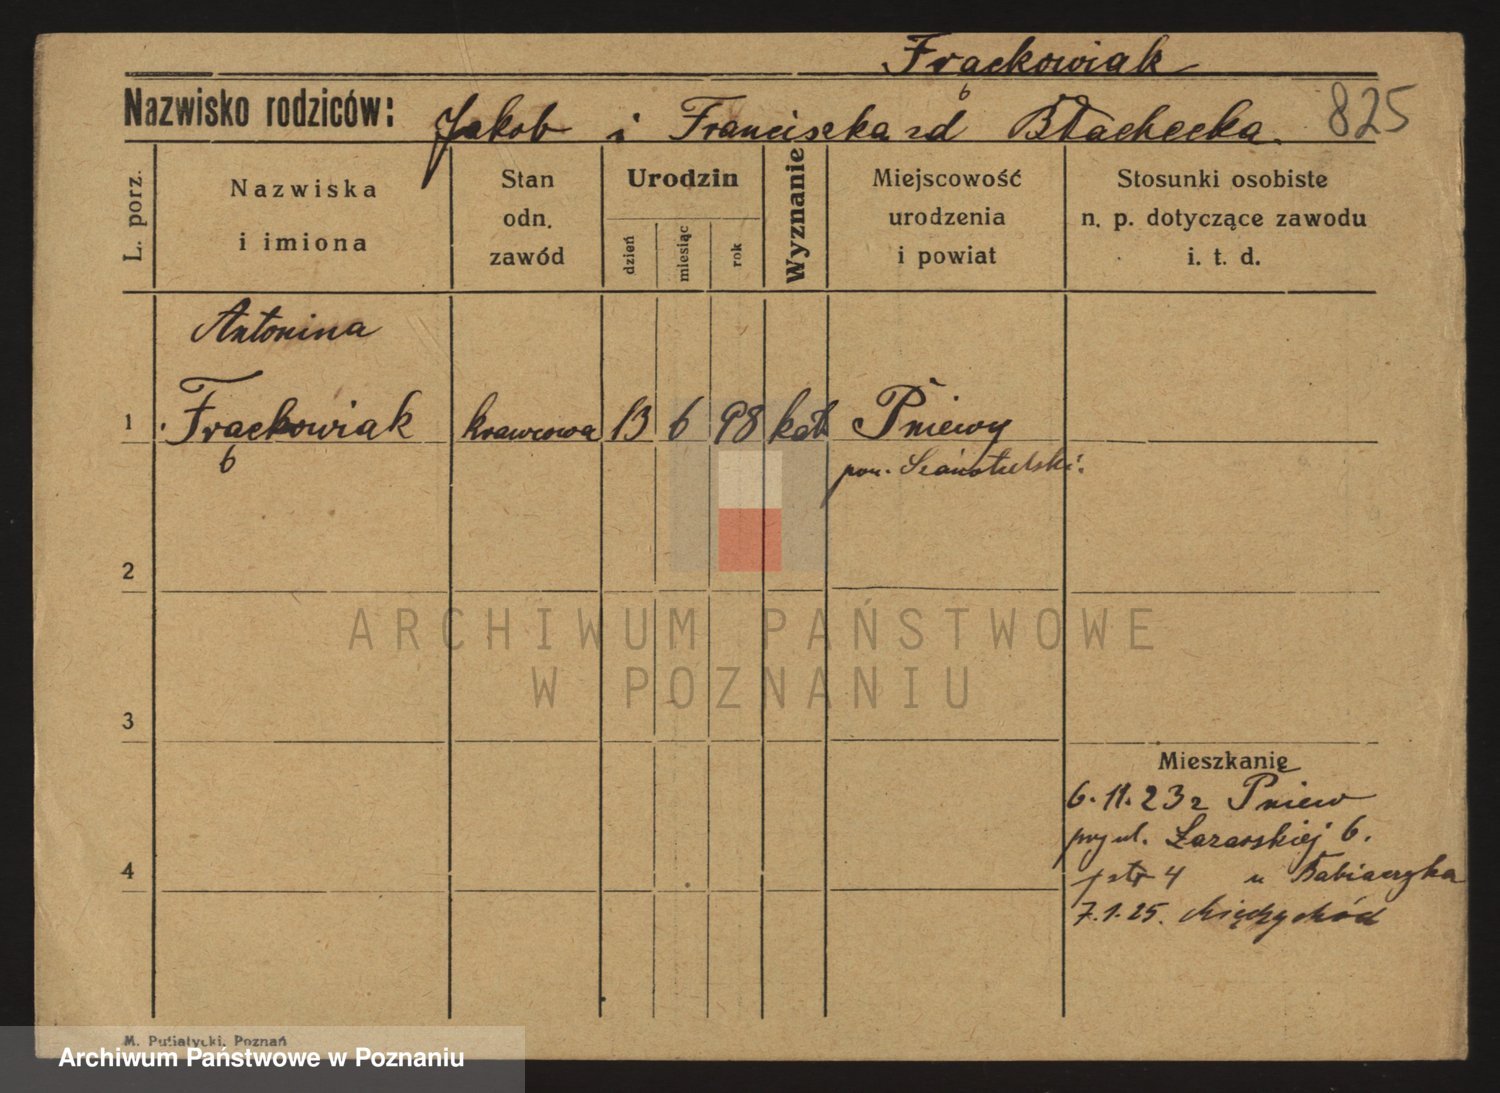 Frąckowiak
Nazwisko rodziców: Jakob i Franciszka zd Błachecka. 825
L. porz.
Nazwiska
i imiona
Stan
odn.
zawód
Urodzin
dzień
miesiąc
rok
Wyznanie
Miejscowość
urodzenia
i powiat
Stosunki osobiste
n. p. dotyczące zawodu
i. t. d.
Antonina
1 Frąckowiak krawcowa 13 6 98 kat Pniewy
pow. Szamotulski.
2
ARCHIWUM PAŃSTWOWE
W POZNANIU
3
Mieszkanie
6.11.23 z Pniew
przy ul. Łazarskiej 6.
ptr 4 u
4
7.1.25. Międzychód
M. Putiatycki, Poznań
Archiwum Państwowe w Poznaniu